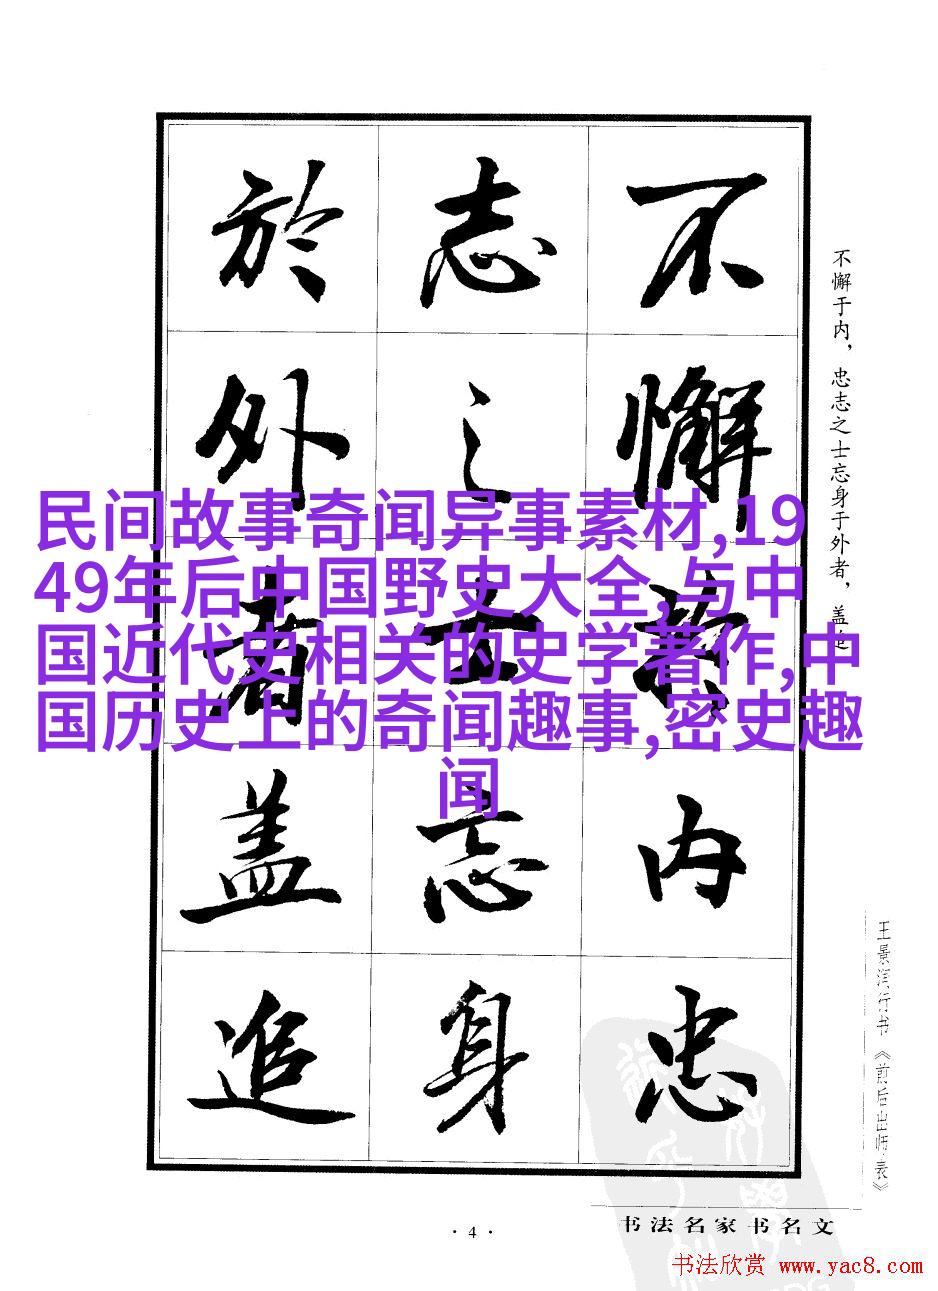 不懈於内忠
志之士忘身
於外者盖追
不懈于内，忠志之士忘身于外者，盖追
民间故事奇闻异事素材,19
49年后中国野史大全,与中
国近代史相关的史学著作,中
国历史上的奇闻趣事,密史趣
闻
王景芬行书《前后出师表》
书法名家书名文
· 4 ·
书法欣赏 www.yac8.com